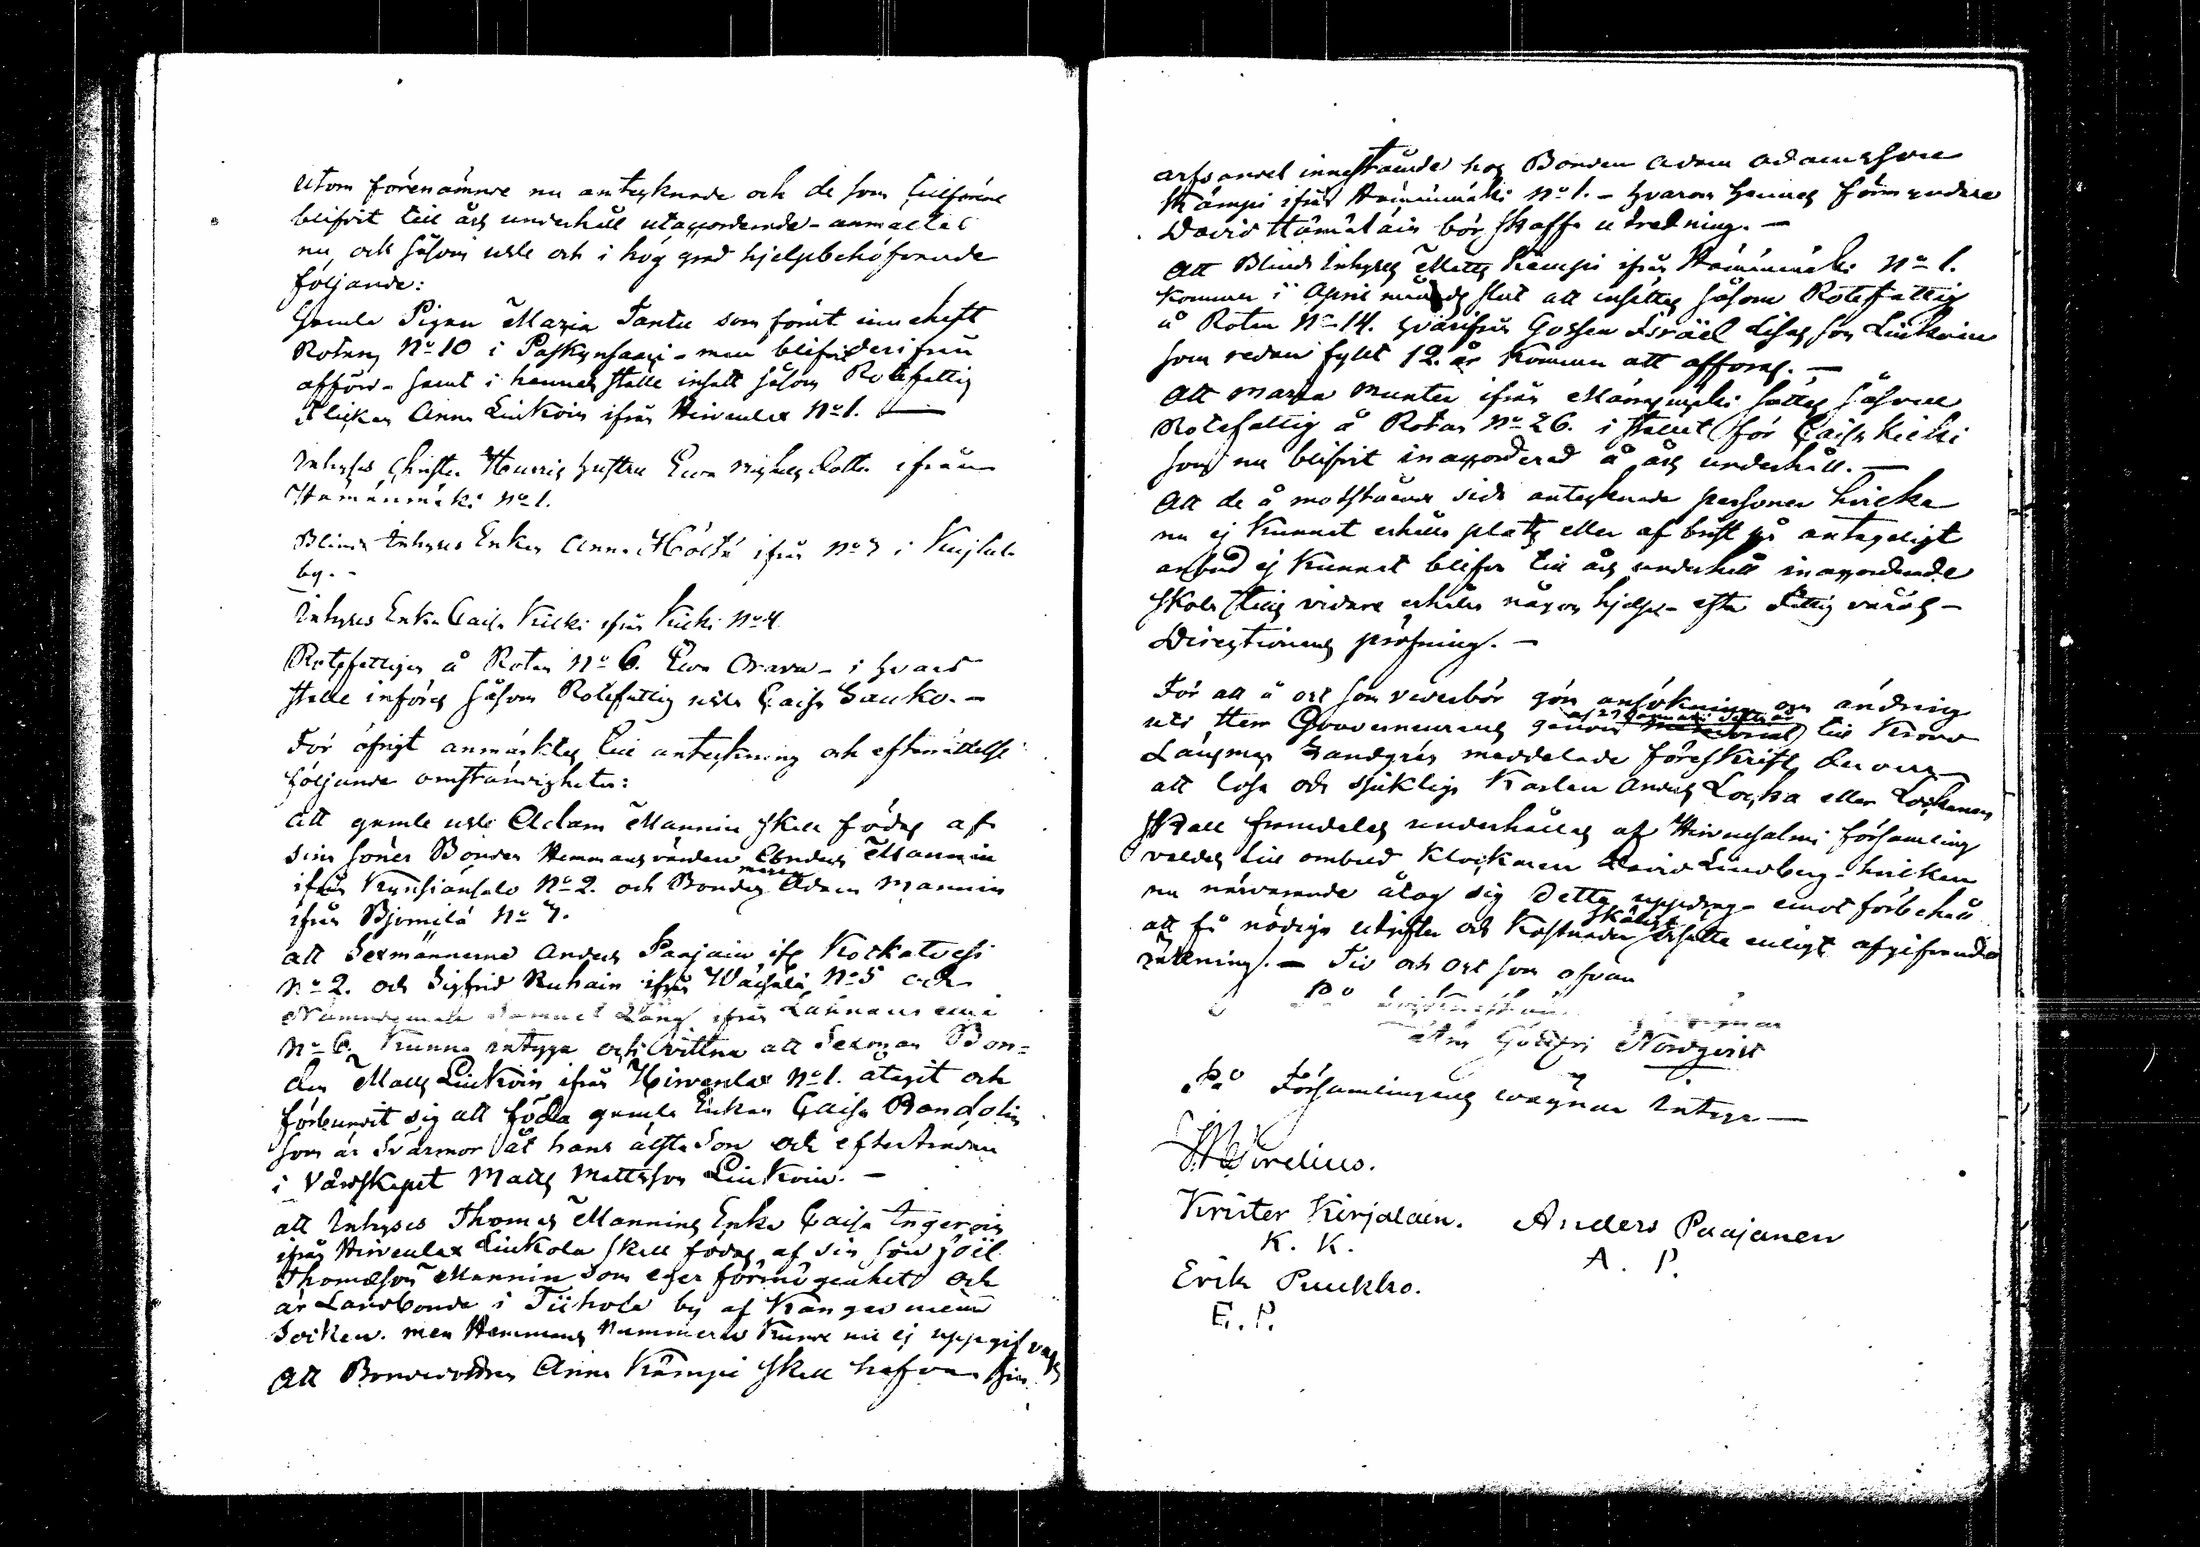 Utom förenämnde nu antecknade och de som tillförene
blifvit till års underhåll utackorderade - anmältes
nu, och såsom usle och i hög grad hjelpbehöfvande
följande:
Gamla Pigan Maria Tantu som förut innehaft
Rotan No 10 i Paskynsaari - men blifvit derifrån
afförd - samt i hennes ställe insatt såsom Rotefattig
Flickan Anna Linkoin ifrån Hirvenlax No 1. —
Inhyses Christer Hourris hustru Ewa Michelsdotter ifrån
Hämänmäki No 1.
Blinda Inhyses Enkan Anna Höltä ifrån No 7 i
by. -
Inhyses Enkan Caisa Kicki ifrån Kicki No 4
Rotefattigen å Rotan No 6. Ewa Orava - i hvars
ställe införes såsom Rotefattig usla Caisa Sauko. -
För öfrigt anmärktes till anteckning och efterrättelse
följande omständigheter:
att gamle usle Adam Mannin skall födas af
sine söner Bonden Hemmansvärden Anders Mannin
ifrån Kynsiänsalo No 2. och Bonden Adam Mannin
ifrån Bjornilä No 7.
att Sexmännerne Anders Paajain ifrån Kockatvesi
No 2. och Sigfrid Ruhain ifrån Wäisälä No 5 och
Nämndeman Samuel Läng ifrån Lahnaniemi
No 6. kunna intyga och vittna att Sexman Bon=
den Matts Linkoin ifrån Hirvenlax No 1. åtagit och
förbundit sig att föda gamla Enkan Caisa Bondolin
som är Svärmor åt hans älsta Son och efterträdare
i Värdskapet Matts Mattsson Linkoin. —
att Inhyses Thomas Mannins Enka Caisa Ingeroin
ifrån Hirvenlax Linkola skall födas af sin son Joël
Thomasson Mannin som eger förmögenhet och
är Landbonde i Tiihola by af Kangasniemi
Socken. men Hemmans Nummern kunde nu ej uppgifvas
Att Bondedottren Anna Kämpi skall hafva sin
arfsandel innestående hos Bonden Adam Adamsson
Kämpi ifrån Hämänmäki No 1. - hvarom hennes förmyndare
David Hämäläin bör skaffa utredning. —
Att Blinde Inhyses Matts Kämpi ifrån Hämänmäki No 1.
kommer i April månads slut att insättas såsom Rotefattig
å Rotan No 14. hvarifrån Gossen Israël Lisas son Linkoin
som redan fyllt 12. år kommer att afföras. —
Att Maria Munter ifrån sättes såsom
Rotefattig å Rotan No 26. i stället för Caisa Kicki
som nu blifvit inackorderad å års underhåll. —
Att de å motstående sida antecknade personer hvilka
nu ej kunnat erhålla plats eller af brist på antageligt
anbud ej kunnat blifva till års underhåll inackorderade
skola tills vidare erhålla någon hjelp - efter Fattigvårds-
Directionens pröfning. —
För att å ort som vederbör göra ansökning om ändring
uti Herr Gouverneurens genom af 27 Januari till Krono
Länsman Sandgrén meddelade föreskrift derom
att lösa och sjuklige Karlen Anders Locka eller Lockanen
skall framdeles underhållas af Hirvensalmi församling
valdes till ombud Klockaren David Lindberg - hvilken
nu närvarande åtog sig detta uppdrag - emot förbehåll
att få nödige utgifter och kostnader skäligt ersatte enligt afgifvande
räkning. — Tid och Ort som ofvan
Nordqvist
På Församlingens wägnar Intyga —
Wirelius.
Krister Kirjalain. Anders Paajanen
K. K. A. P.
Erik Puukko.
E. P.